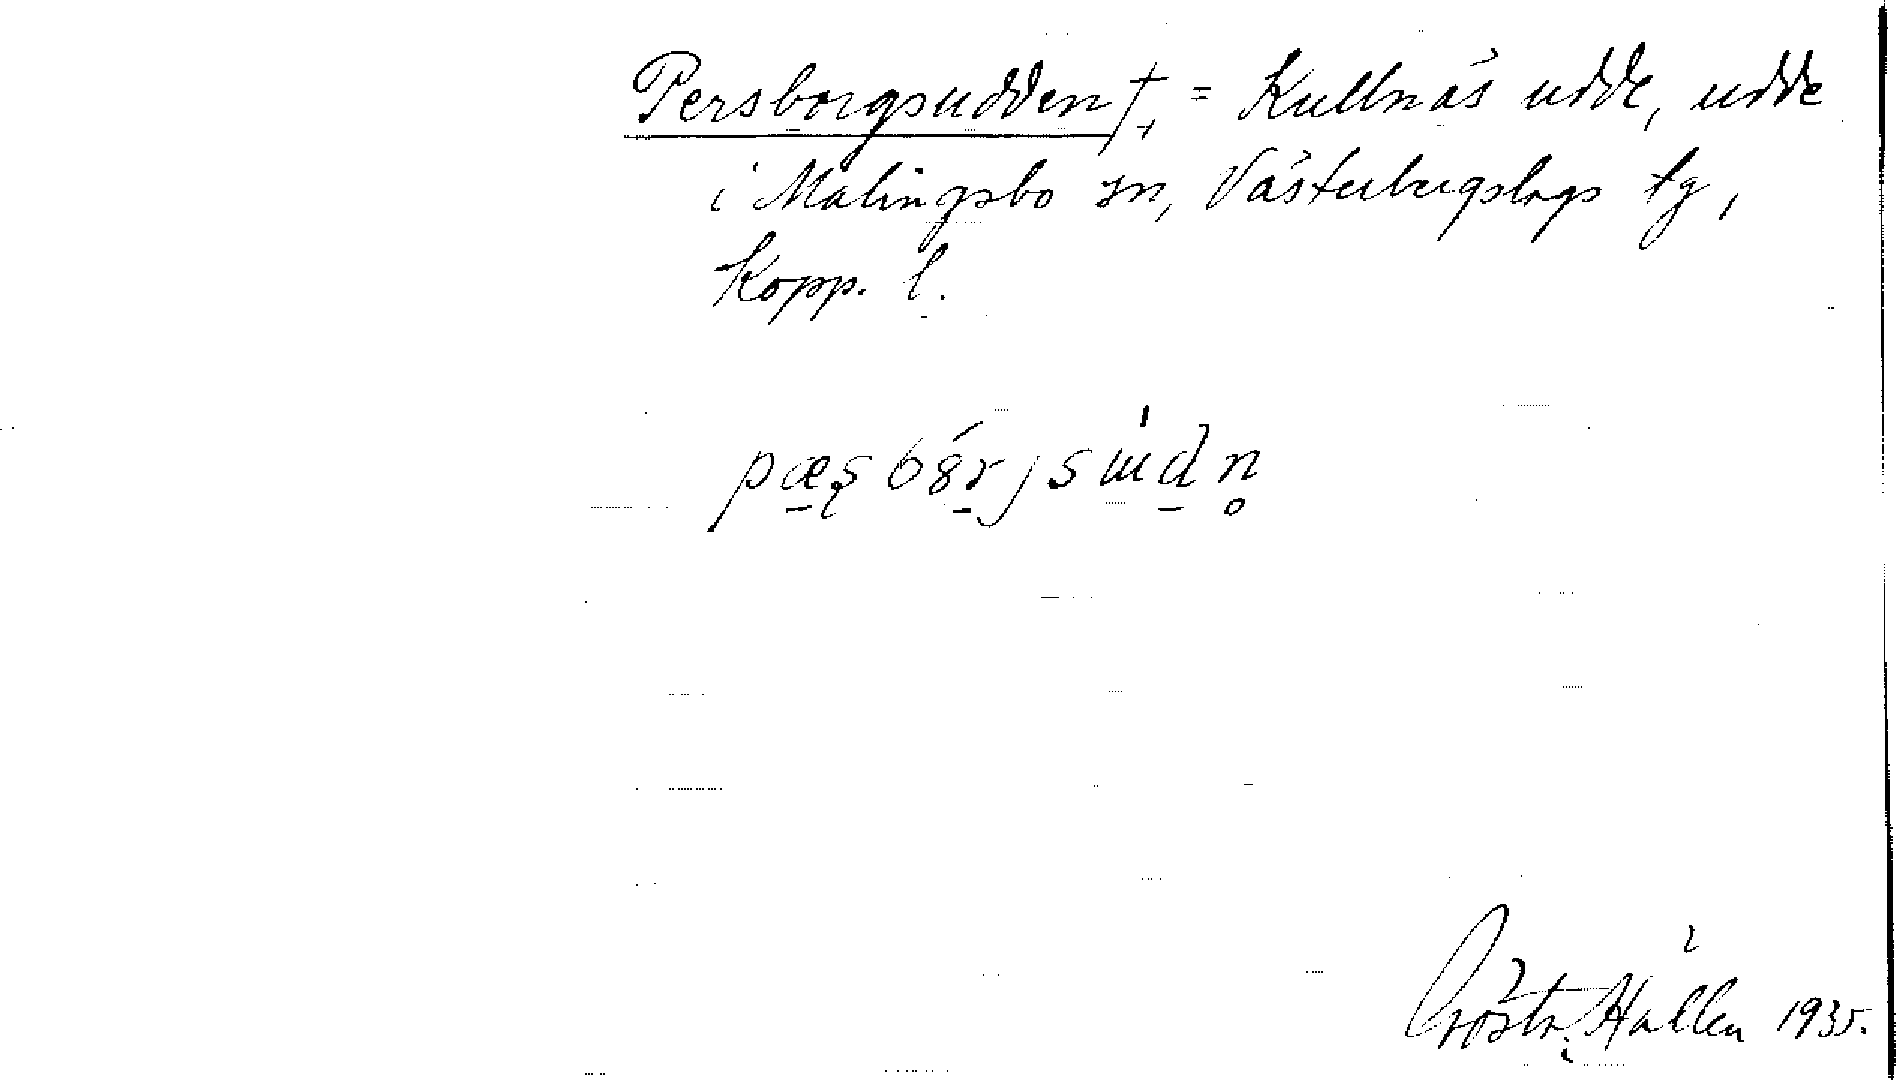 Persborgsudden †, = Kullnäs udde, udde
i Malingsbo sn, Västerbergslags tg,
Kopp. l.
pæs bȣrjsɯdn̥
Hållen 1935.